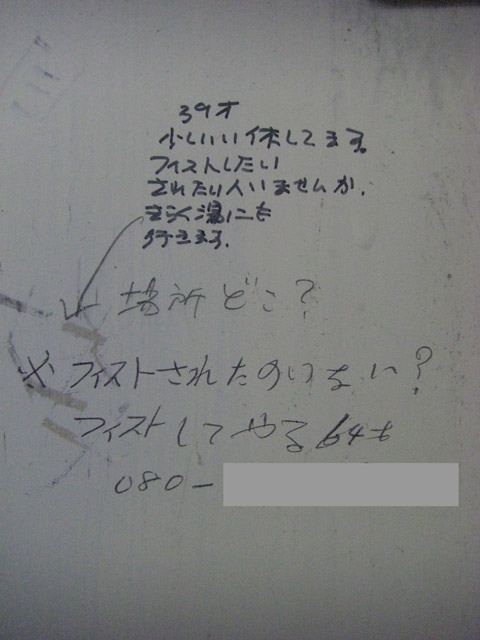 39才
少しいい体してます。
フィストしたい
されたい人いませんか。
行きます。
場所どこ？
※フィストされたのいない？
フィストしてやる64才
080-